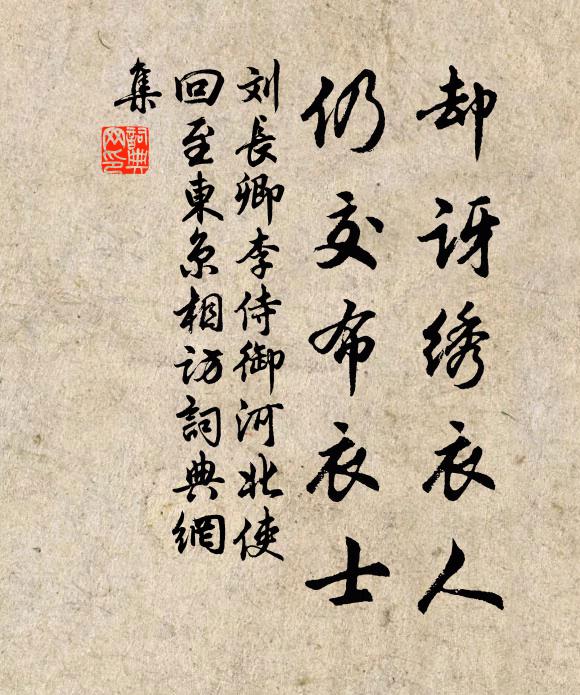 却讶绣衣人
仍交布衣士
刘長卿李侍御河北使
回至東京相访詞典網
集
詞典网印